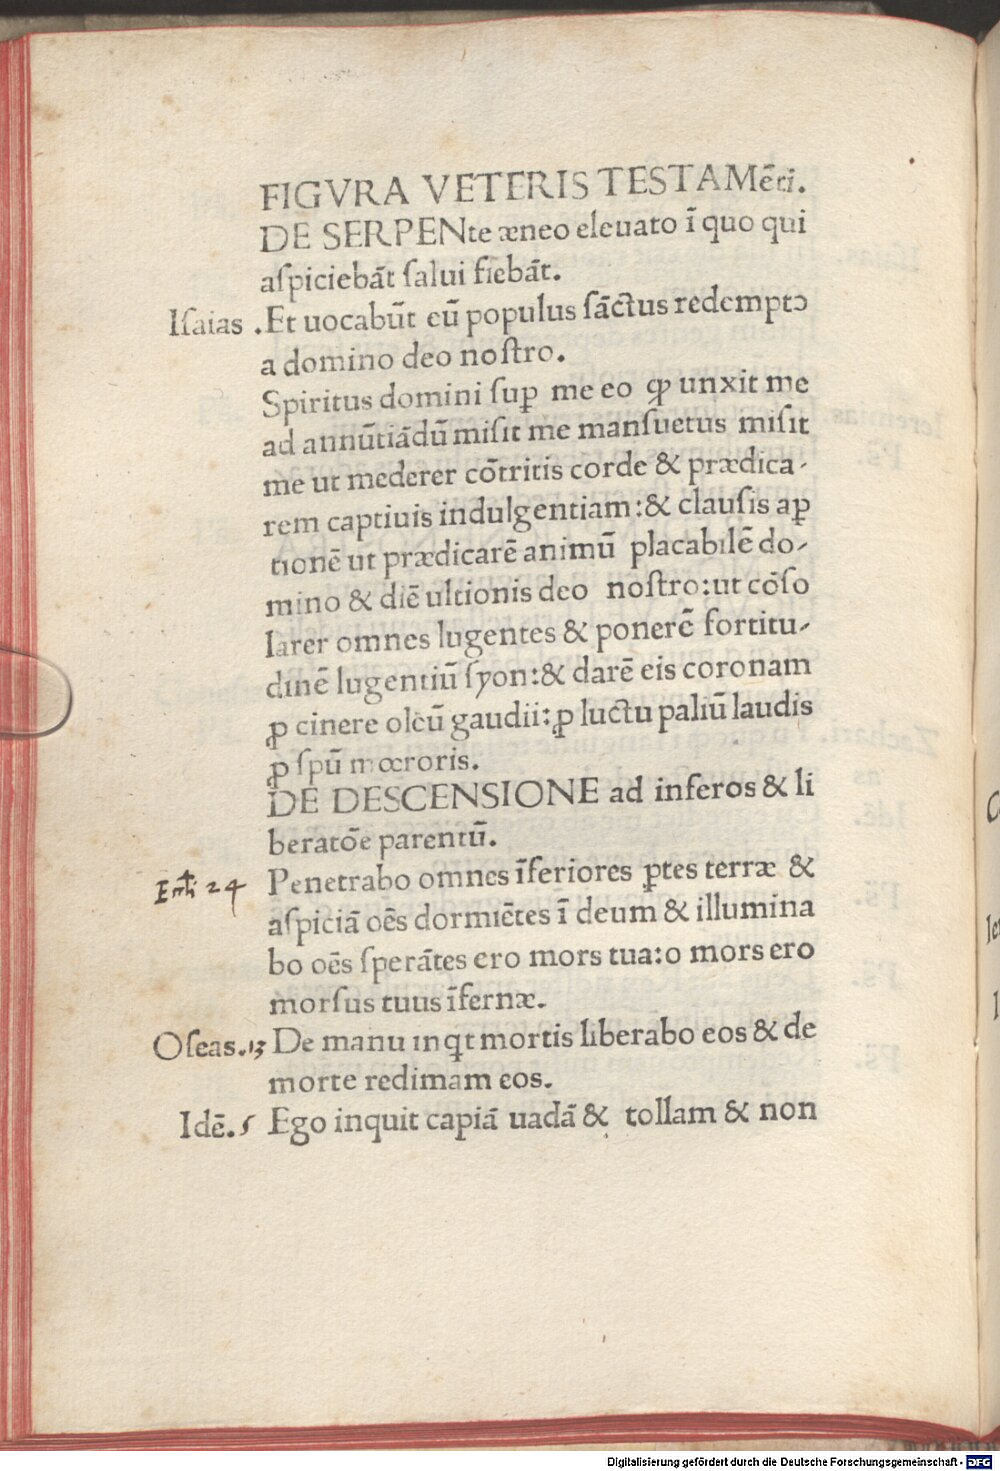 FIGVRA VETERIS TESTAMēti.
DE SERPENte æneo eleuato ī quo qui
aſpiciebāt ſalui fiebāt.
Iſaias .Et uocabūt eū populus ſāctus redemptɔ
a domino deo noſtro.
Spiritus domini ſuꝑ me eo ꝙ unxit me
ad annūtiādū miſit me manſuetus miſit
me ut mederer cōtritis corde & prædica-
rem captiuis indulgentiam:& clauſis aꝑ
tionē ut prædicarē animū placabilē do-
mino & diē ultionis deo noſtro:ut cōſo
larer omnes lugentes & ponerē fortitu-
dinē lugentiū ſyon:& darē eis coronam
ꝓ cinere oleū gaudii:ꝓ luctu paliū laudis
ꝓ ſpū mœroris.
DE DESCENSIONE ad inferos & li
beratōe parentū.
24 Penetrabo omnes īferiores ꝑtes terræ &
aſpiciā oēs dormiētes ī deum & illumina
bo oēs ſperātes ero mors tua:o mors ero
morſus tuus īfernæ.
Oſeas.13 De manu inqt mortis liberabo eos & de
morte redimam eos.
Idē. 5 Ego inquit capiā uadā & tollam & non
Digitalisierung gefördert durch die Deutsche Forschungsgemeinschaft - DFG